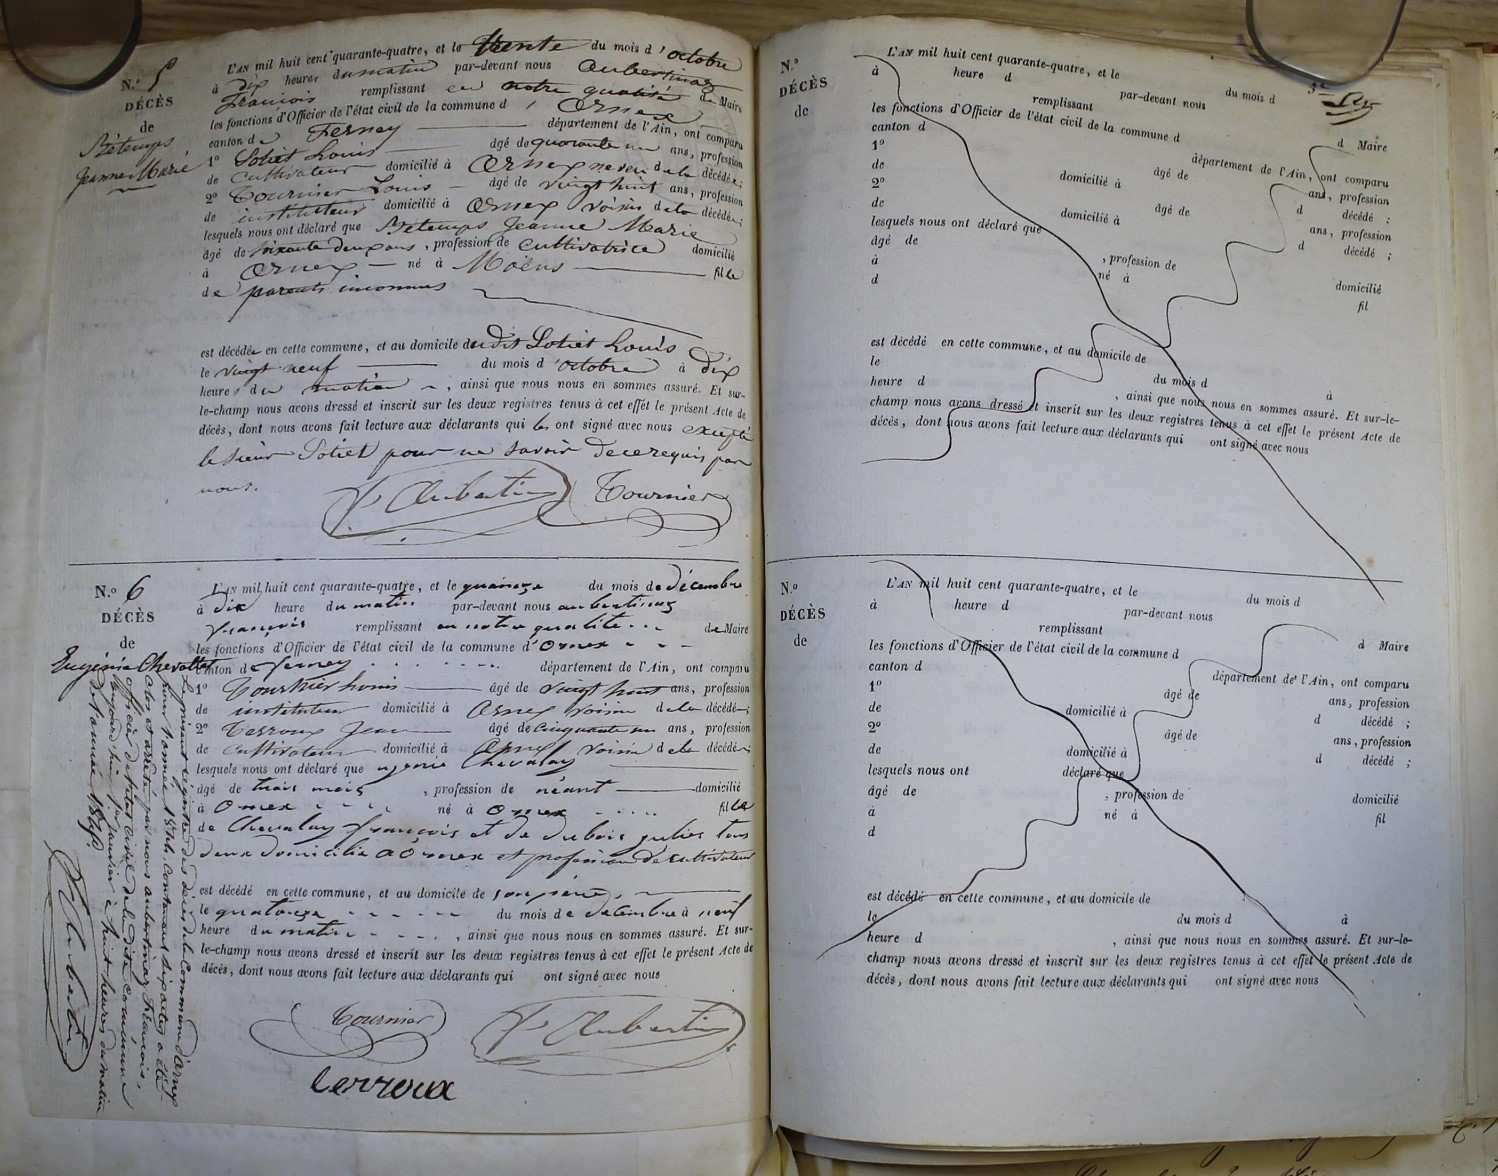 N.o 5
DÉCÈS
de
Bétemps
Jeanne Marie
L'AN mil huit cent quarante-quatre, et le trente du mois d'octobre
à dix heures du matin par-devant nous aubertinaz
françois remplissant en notre qualité de Maire
les fonctions d'Officier de l'état civil de la commune d'Ornex
canton de Ferney département de l'Ain, ont comparu
1o Sotiet Louis âgé de quarante un ans, profession
de cultivateur domicilié à Ornex neveu de la décédée;
2o Tournier Louis âgé de vingt huit ans, profession
de instituteur domicilié à Ornex voisin de la décédée;
lesquels nous ont déclaré que Bétemps Jeanne Marie
âgé de soixante deux ans, profession de cultivatrice domicilié
à Ornex né à Moëns fille
de parents inconnus
est décédée en cette commune, et au domicile dudit Sotiet Louis
le vingt neuf du mois d'octobre à dix
heures du matin, ainsi que nous nous en sommes assuré. Et sur-
le-champ nous avons dressé et inscrit sur les deux registres tenus à cet effet le présent Acte de
décès, dont nous avons fait lecture aux déclarants qui les ont signé avec nous excepté
le sieur Sotiet pour ne savoir de ce requis par
nous.
F Aubertin Tournier
N.o 6
DÉCÈS
de
Eugénie Chevallet
L'AN mil huit cent quarante-quatre, et le quainze du mois de décembre
à dix heure du matin par-devant nous aubertinaz
françois remplissant en notre qualité de Maire
les fonctions d'Officier de l'état civil de la commune d'Ornex
canton d ferney département de l'Ain, ont comparu
1o Tournier Louis âgé de vingt huit ans, profession
de instituteur domicilié à Ornex voisin de la décédée;
2o Terroux Jean âgé de cinquante un ans, profession
de cultivateur domicilié à Ornex voisin de la décédée;
lesquels nous ont déclaré que ugenie Chevalay
âgé de trois meis, profession de néant domicilié
à Ornex né à Ornex fille
de Chevalay françois et de dubois julies tous
deux domicilié a Ornex et profession de cultivateur
est décédé en cette commune, et au domicile de son père,
le quatorze du mois de décembre à neuf
heure du matin, ainsi que nous nous en sommes assuré. Et sur-
le-champ nous avons dressé et inscrit sur les deux registres tenus à cet effet le présent Acte de
décès, dont nous avons fait lecture aux déclarants qui ont signé avec nous
Tournier F Aubertin
terroux
Le présent registre des décès de la Commune d'Ornex
pour l'année 1844. Contenant six actes a été
Clos et arrêté par nous aubertinaz françois,
officier de l'état civil de la dite commune
aujourd'hui 1er janvier à huit heures du matin
de l'année 1845.
F Aubertin
N.o
DÉCÈS
de
L'AN mil huit cent quarante-quatre, et le du mois d
à heure d par-devant nous
remplissant d Maire
les fonctions d'Officier de l'état civil de la commune d
canton d département de l'Ain, ont comparu
1o âgé de ans, profession
de domicilié à d décédé;
2o âgé de ans, profession
de domicilié à d décédé;
lesquels nous ont déclaré que
âgé de, profession de domicilié
à né à fil
d
est décédé en cette commune, et au domicile de
le du mois d à
heure d, ainsi que nous nous en sommes assuré. Et sur-le-
champ nous avons dressé et inscrit sur les deux registres tenus à cet effet le présent Acte de
décès, dont nous avons fait lecture aux déclarants qui ont signé avec nous
N.o
DÉCÈS
de
L'AN mil huit cent quarante-quatre, et le du mois d
à heure d par-devant nous
remplissant d Maire
les fonctions d'Officier de l'état civil de la commune d
canton d département de l'Ain, ont comparu
1o âgé de ans, profession
de domicilié à d décédé;
2o âgé de ans, profession
de domicilié à d décédé;
lesquels nous ont déclaré que
âgé de, profession de domicilié
à né à fil
d
est décédé en cette commune, et au domicile de
le du mois d à
heure d, ainsi que nous nous en sommes assuré. Et sur-le-
champ nous avons dressé et inscrit sur les deux registres tenus à cet effet le présent Acte de
décès, dont nous avons fait lecture aux déclarants qui ont signé avec nous